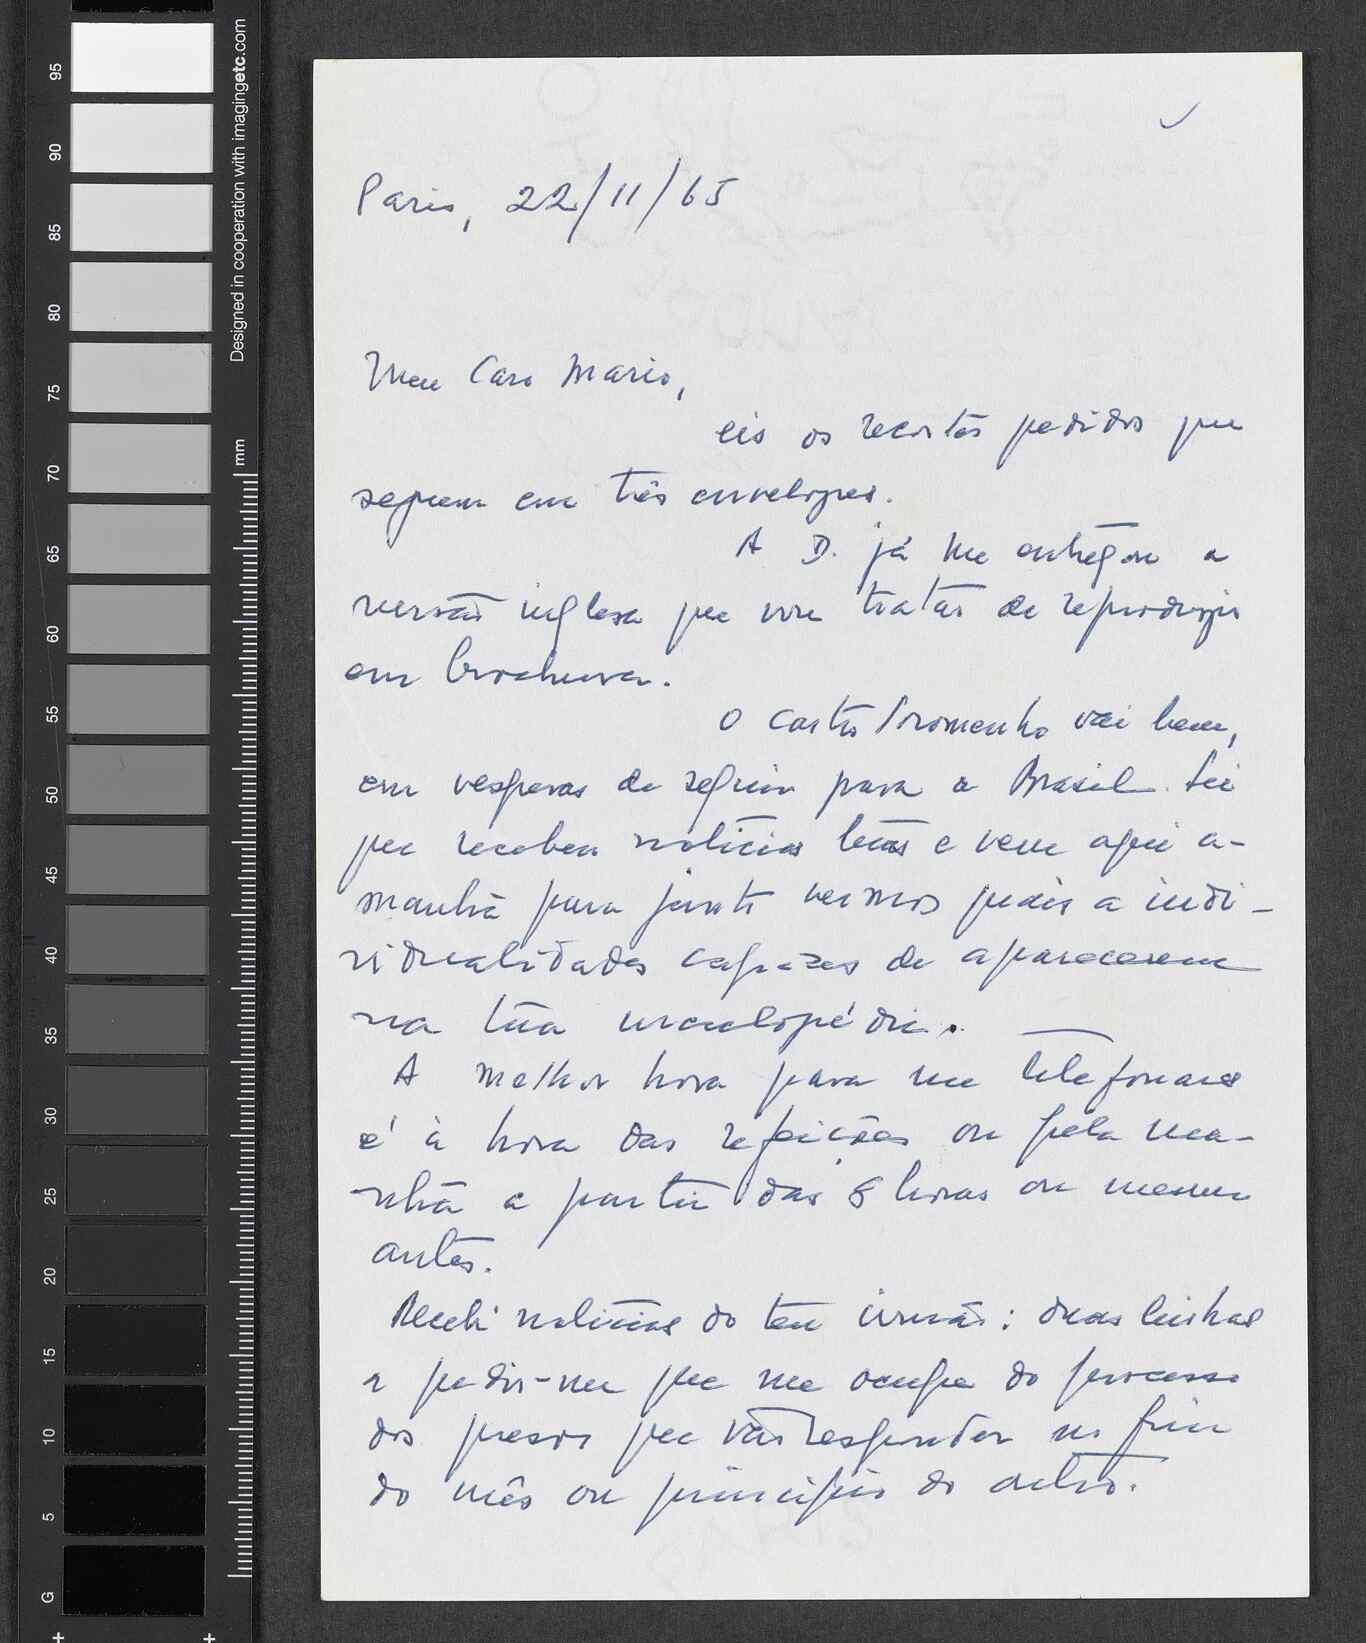 Designed in cooperation with imagingetc.com
mm
95
90
85
80
75
70
65
60
55
50
45
40
35
30
25
20
15
10
5
G
Paris, 22/11/65
Meu Caro Mario,
eis os recortes pedidos que
seguem em três envelopes.
A D. já me entregou a
versão inglesa que vou tratar de reproduzir
em brochura.
O Castro Soromenho vai bem,
em vesperas de seguir para o Brasil. Sei
que recebeu notícias tuas e vem aqui a-
manhã para juntos vermos quais a indi-
vidualidades capazes de aparecerem
na tua enciclopédia.
A melhor hora para me telefonares
é à hora das refeições ou pela ma-
nhã a partir das 8 horas ou mesmo
antes.
Recebi notícias do teu irmão: duas linhas
a pedir-me que me ocupe do processo
dos presos que vão responder no fim
do mês ou principios do outro.